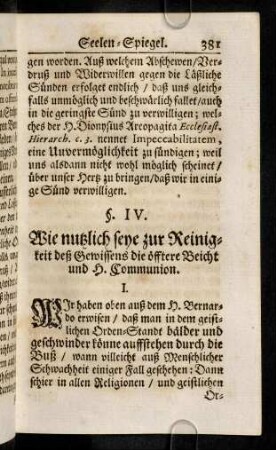 Seelen-Spiegel. 381
gen worden. Auß welchem Abschewen/Ver-
druß und Widerwillen gegen die Läßliche
Sünden erfolget endlich / daß uns gleich-
falls unmöglich und beschwärlich fallet/auch
in die geringste Sünd zu verwilligen; wel-
ches der H. Dionysius Areopagita Ecclesiast.
Hierarch. c. 3. nennet Impeccabilitatem,
eine Unvermöglichkeit zu sündigen; weil
uns alsdann nicht wohl möglich scheinet/
über unser Hertz zu bringen/daß wir in eini-
ge Sünd verwilligen.
§. IV.
Wie nutzlich seye zur Reinig-
keit deß Gewissens die öfftere Beicht
und H. Communion.
I.
WIr haben oben auß dem H. Bernar-
do erwisen / daß man in dem geist-
lichen Orden-Standt bälder und
geschwinder könne auffstehen durch die
Buß / wann villeicht auß Menschlicher
Schwachheit einiger Fall geschehen: Dann
schier in allen Religionen / und geistlichen
Or-